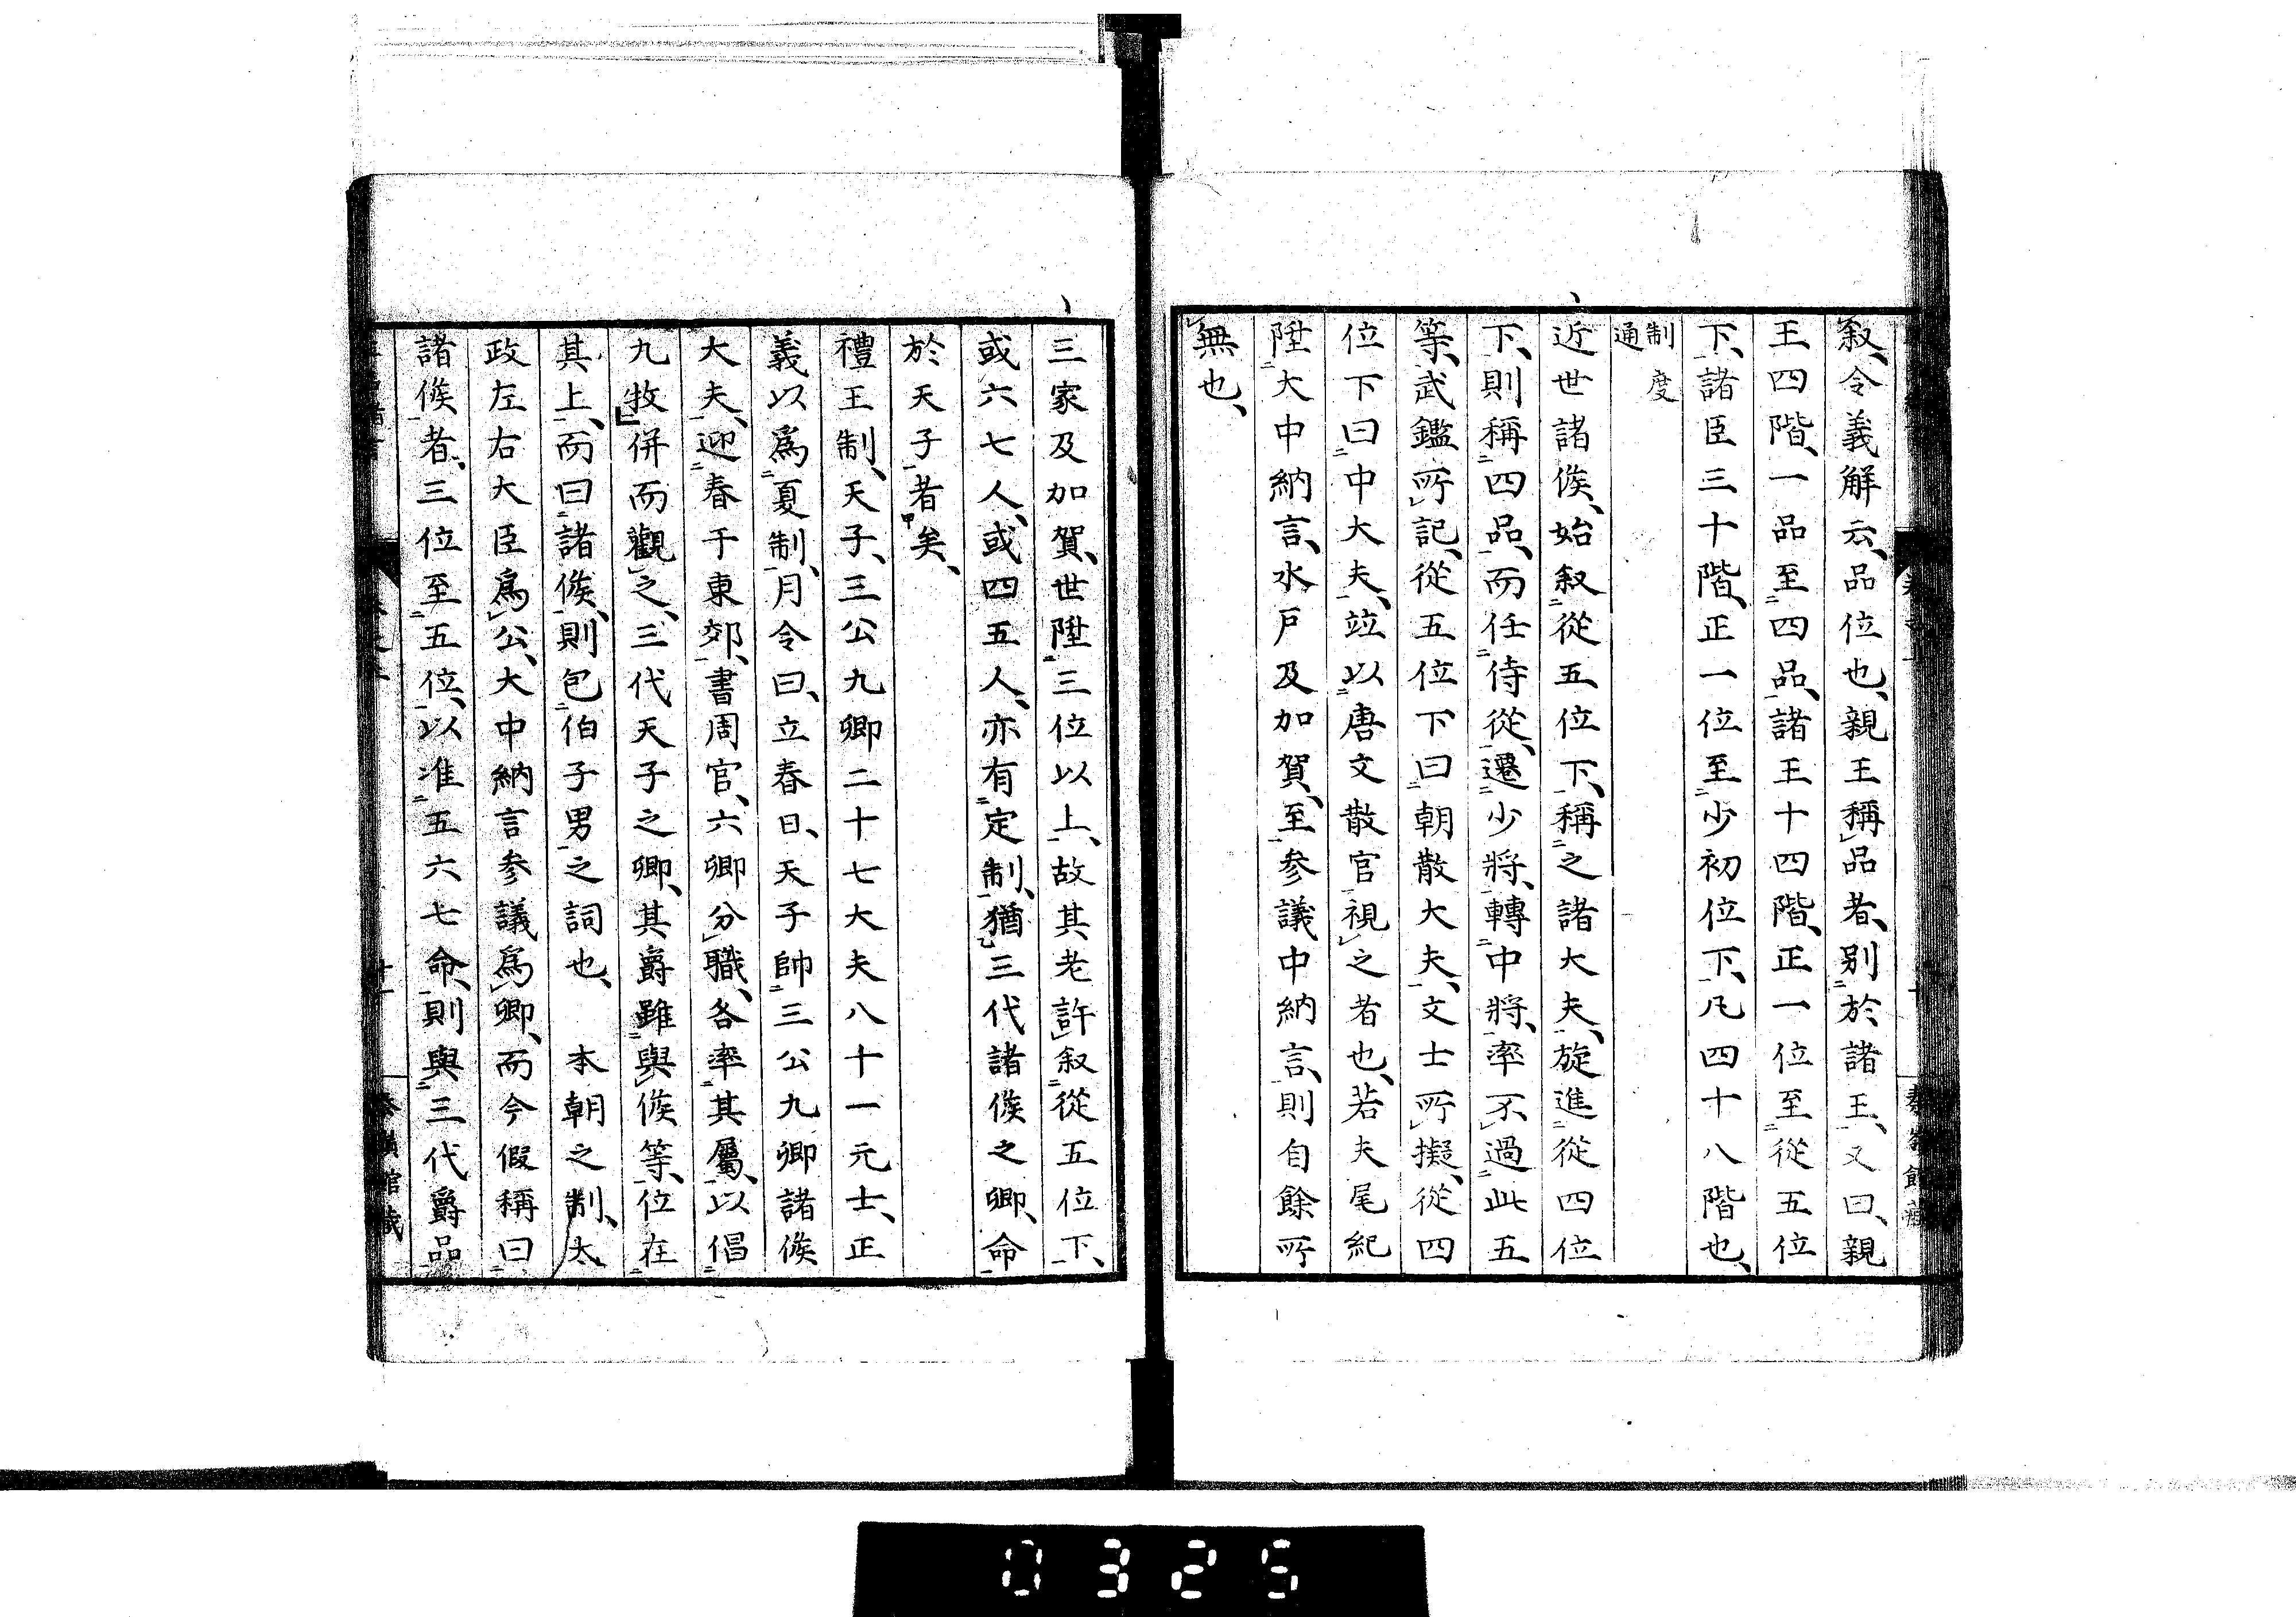 叙、令義解云、品位也、親王稱品者、別於諸王、又曰、親
王四階、一品至四品、諸王十四階、正一位至從五位
下、諸臣三十階、正一位至少初位下、凡四十八階也、
制度
通
近世諸侯、始叙從五位下、稱之諸大夫、旋進從四位
下、則稱四品、而任侍從、遷少將、轉中將、率不過此五
等、武鑑所記、從五位下曰朝散大夫、文士所擬、從四
位下曰中大夫、竝以唐文散官視之者也、若夫尾紀
陞大中納言、水戸及加賀、至參議中納言、則自餘所
無也、
三家及加賀、世陞三位以上、故其老許叙從五位下、
或六七人、或四五人、亦有定制、猶三代諸侯之卿、命
於天子者矣、
禮王制、天子、三公九卿二十七大夫八十一元士、正
義以爲夏制、月令曰、立春日、天子帥三公九卿諸侯
大夫、迎春于東郊、書周官、六卿分職、各率其屬、以倡
九牧、併而觀之、三代天子之卿、其爵雖與侯等、位在
其上、而曰諸侯、則包伯子男之詞也、 本朝之制、太
政左右大臣爲公、大中納言參議爲卿、而今假稱曰
諸侯者、三位至五位、以准五六七命、則與三代爵品
0325